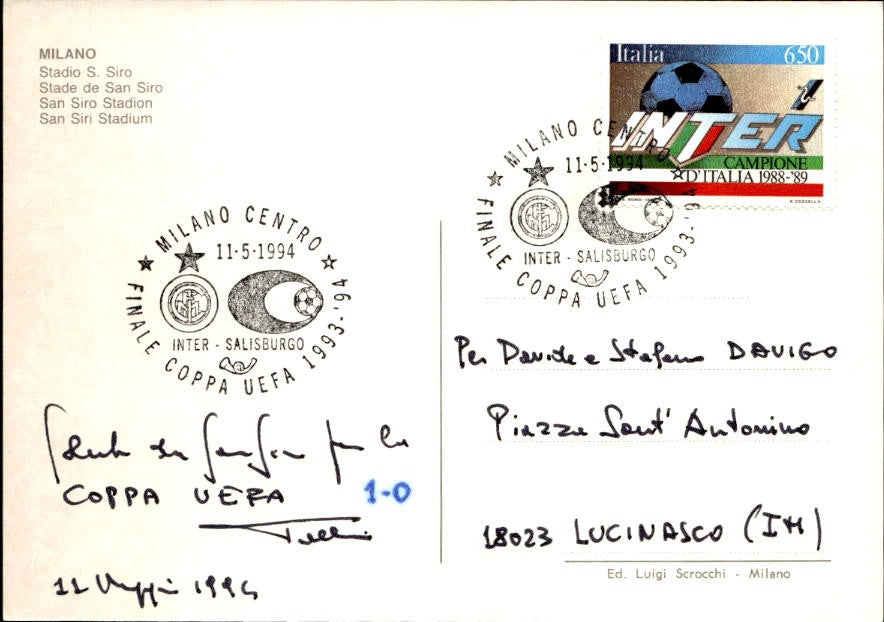 MILANO
Stadio S. Siro
Stade de San Siro
San Siro Stadion
San Siri Stadium
Italia 650
INTER
CAMPIONE
D'ITALIA 1988-'89
N. COZZELLA
MILANO CENTRO
11-5-1994
INTER - SALISBURGO
FINALE COPPA UEFA 1993-'94
MILANO CENTRO
11-5-1994
INTER - SALISBURGO
FINALE COPPA UEFA 1993-'94
Per Davide e Stefano DAVIGO
Piazza Sant' Antonino
18023 LUCINASCO (IM)
Ed. Luigi Scrocchi - Milano
per la
COPPA UEFA 1-0
11 Maggio 1994